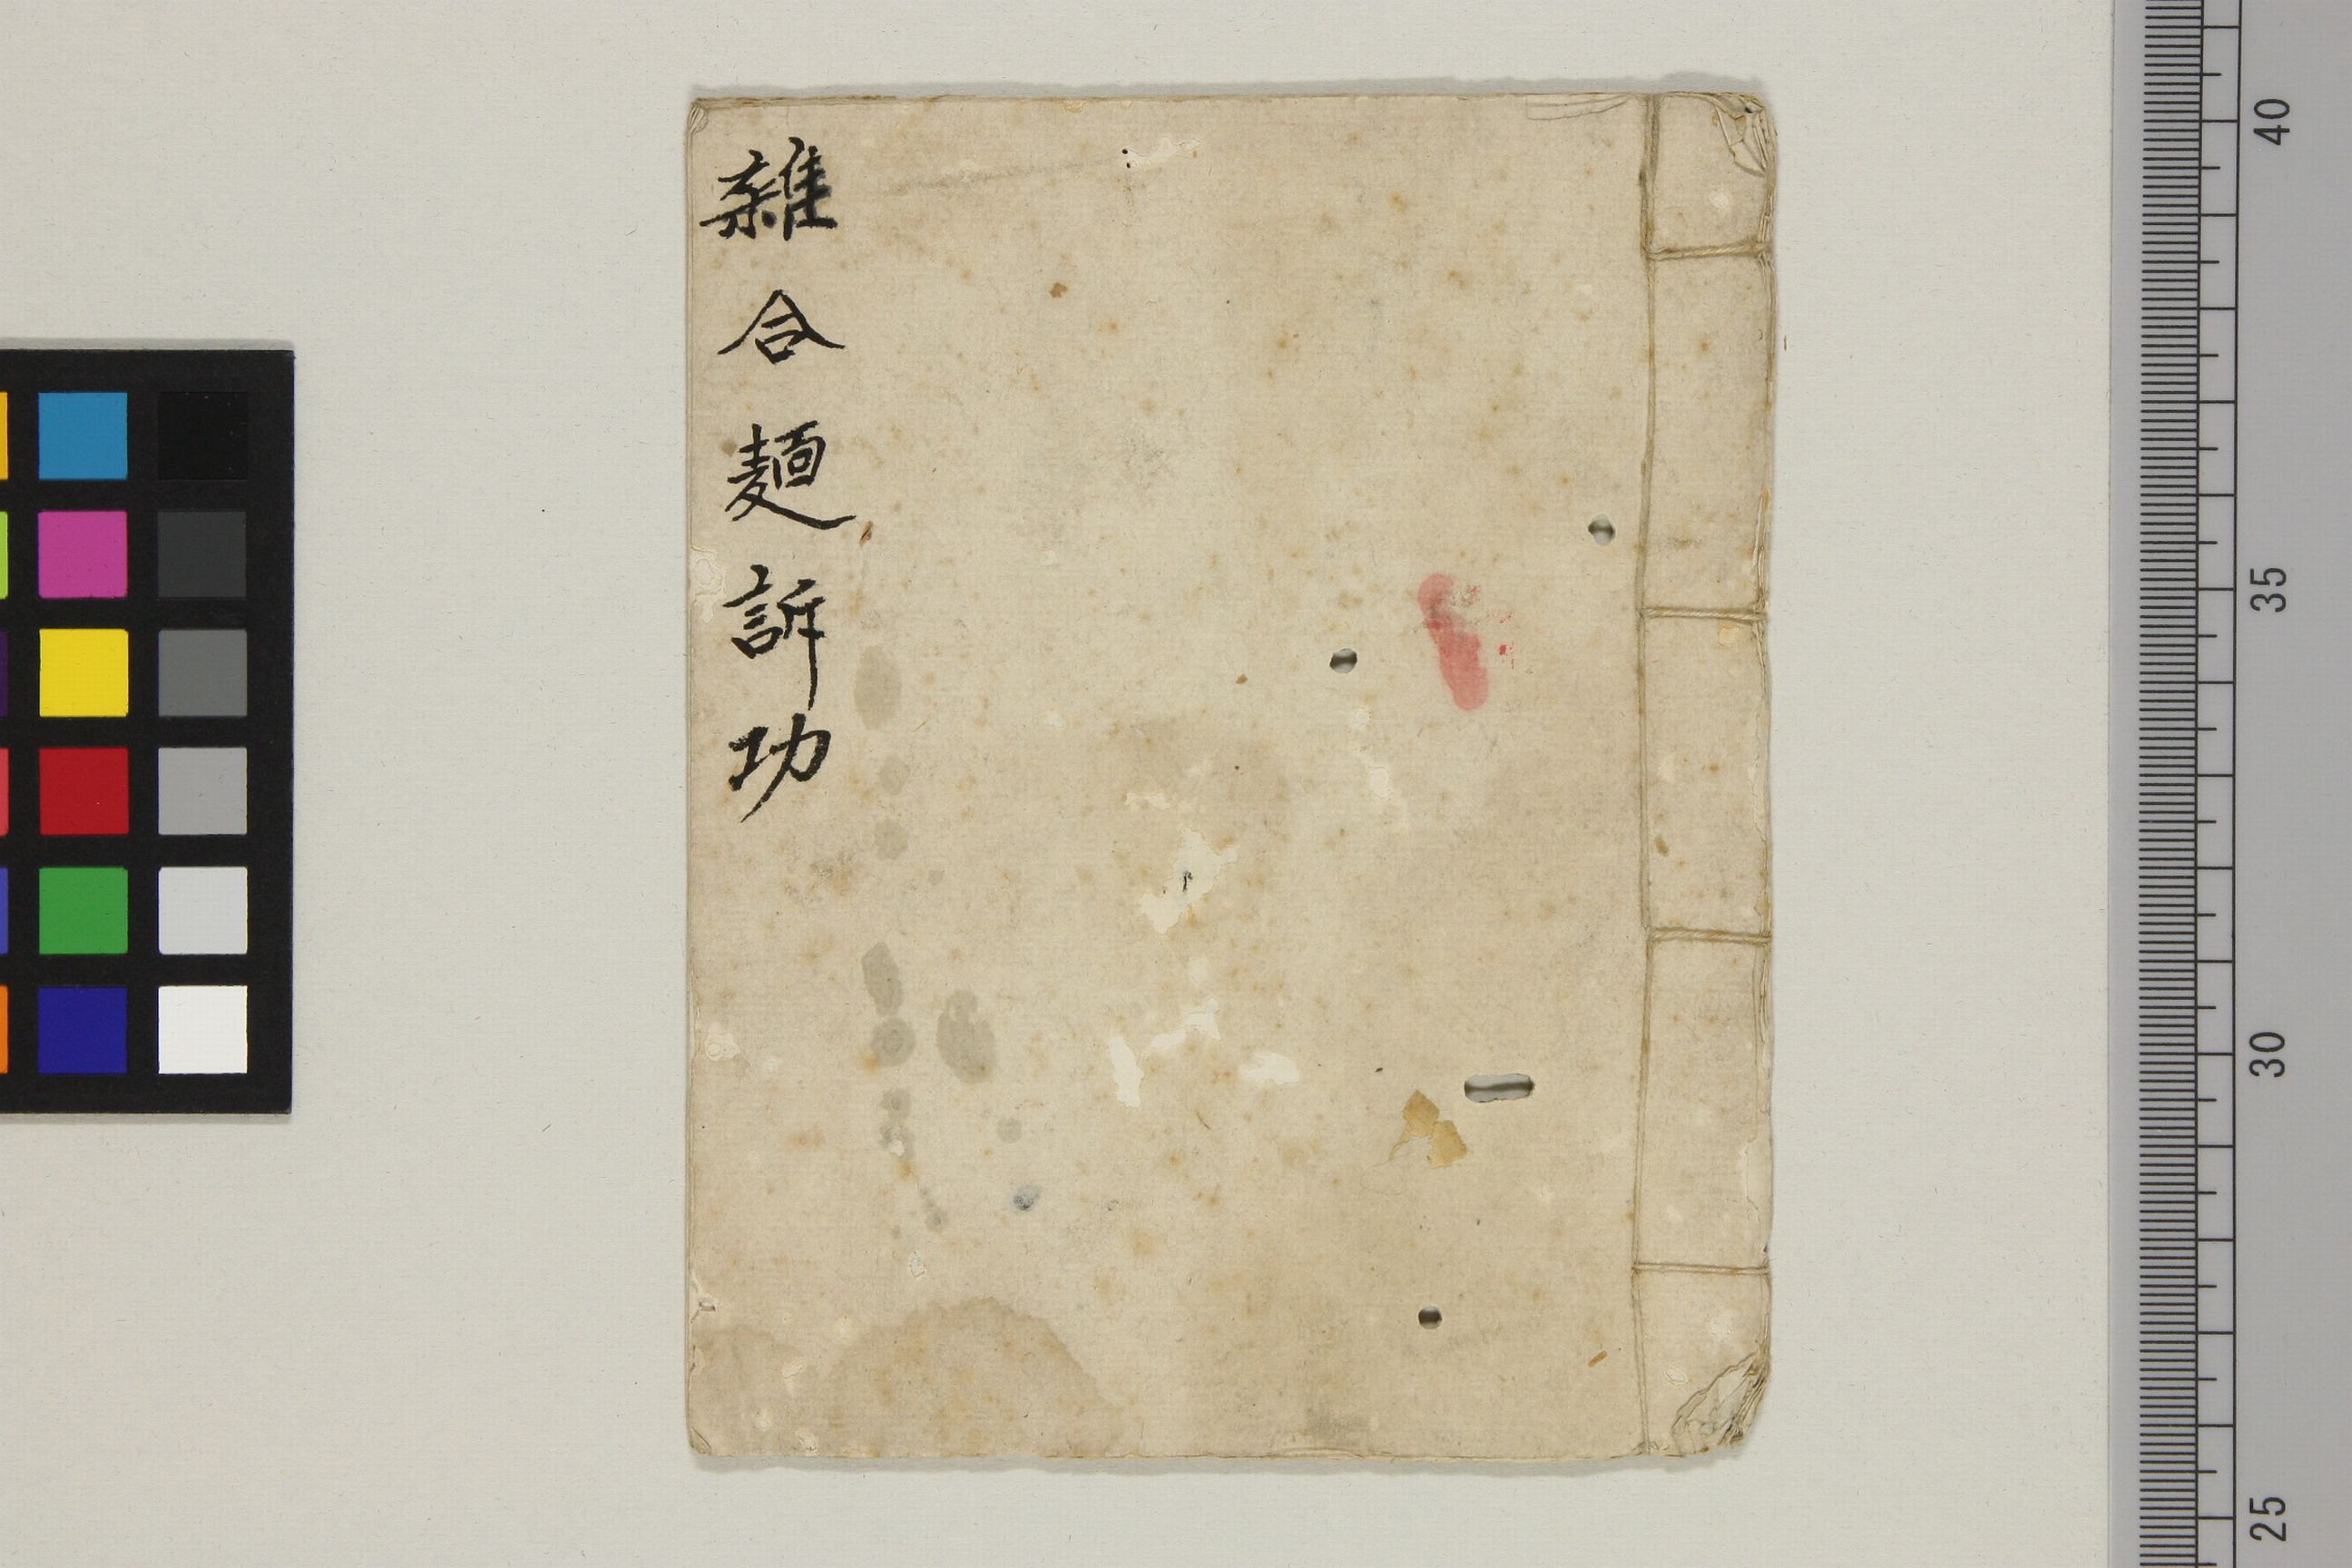 雜合麺訴功
40
35
30
25